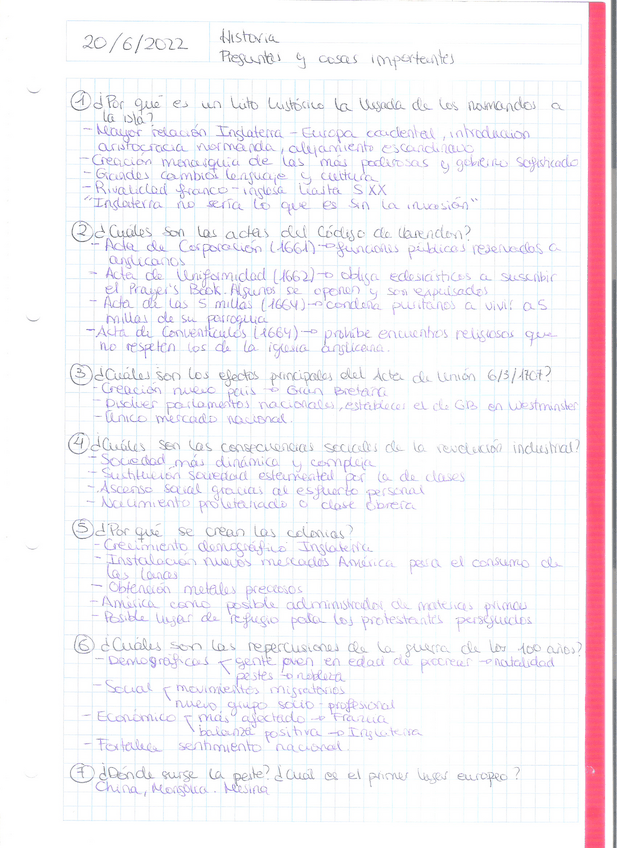 20/6/2022
Historia
Preguntas y cosas importantes
① ¿Por qué es un hito histórico la llegada de los normandos a
la isla?
- Mayor relación Inglaterra - Europa occidental, introducción
aristocracia normanda, alejamiento escandinavo
- Creación monarquía de las más poderosas y gobierno sofisticado
- Grandes cambios lenguaje y cultura
- Rivalidad franco-inglesa hasta S XX
"Inglaterra no sería lo que es sin la invasión"
② ¿Cuáles son las actas del Código de Clarendon?
- Acta de Corporación (1661) → funciones públicas reservadas a
anglicanos
- Acta de Uniformidad (1662) → obliga eclesiásticos a suscribir
el Prayer's Book. Algunos se oponen y son expulsados
- Acta de las 5 millas (1664) → condena puritanos a vivir a 5
millas de su parroquia
- Acta de Conventicules (1664) → prohíbe encuentros religiosos que
no respeten los de la iglesia anglicana.
③ ¿Cuáles son los efectos principales del Acta de Unión 6/3/1707?
- Creación nuevo país → Gran Bretaña
- Disolver parlamentos nacionales, establecer el de GB en Westminster
- Único mercado nacional.
④ ¿Cuáles son las consecuencias sociales de la revolución industrial?
- Sociedad más dinámica y compleja
- Sustitución sociedad estamental por la de clases
- Ascenso social gracias al esfuerzo personal
- Nacimiento proletariado o clase obrera
⑤ ¿Por qué se crean las colonias?
- Crecimiento demográfico Inglaterra
- Instalación nuevos mercados América para el consumo de
las lanas
- Obtención metales preciosos
- América como posible administrador de materias primas
- Posible lugar de refugio para los protestantes perseguidos
⑥ ¿Cuáles son las repercusiones de la guerra de los 100 años?
- Demográficas gente joven en edad de procrear → natalidad
pestes → nobleza
- Social movimientos migratorios
nuevo grupo socio-profesional
- Económico más afectado → Francia
balanza positiva → Inglaterra
- Fortalece sentimiento nacional.
⑦ ¿Dónde surge la peste? ¿Cuál es el primer lugar europeo?
China, Mongolia. Mesina